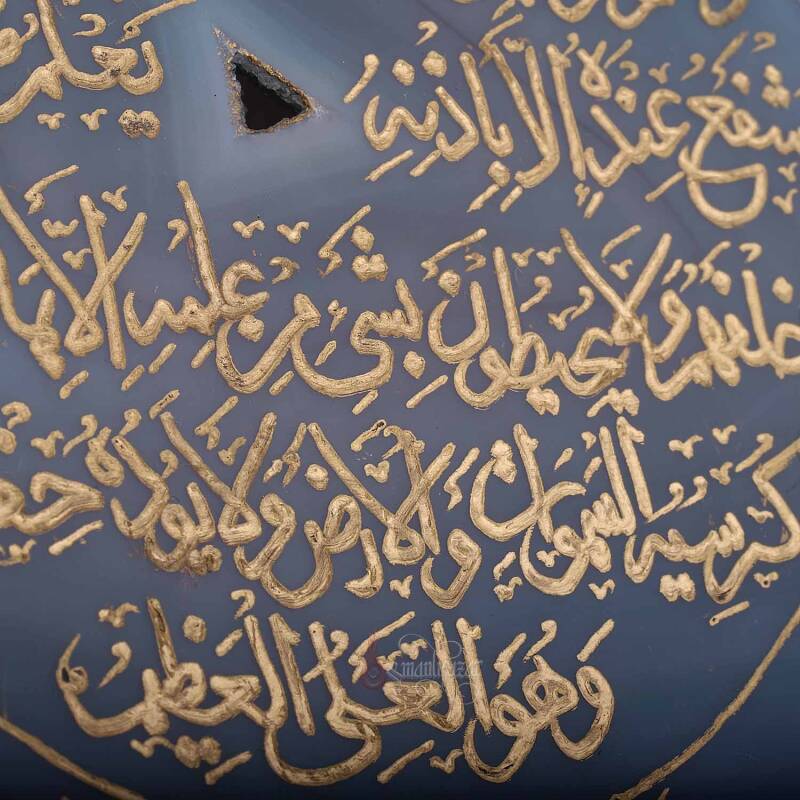 يَعْلَمُ
يَشْفَعُ عِنْدَهُ إِلَّا بِإِذْنِهِ
خَلْفَهُمْ وَلَا يُحِيطُونَ بِشَيْءٍ مِنْ عِلْمِهِ إِلَّا بِمَا
كُرْسِيُّهُ السَّمٰوَاتِ وَالْأَرْضَ وَلَا يَؤُدُهُ حِفْ
وَهُوَ الْعَلِيُّ الْعَظِيمُ